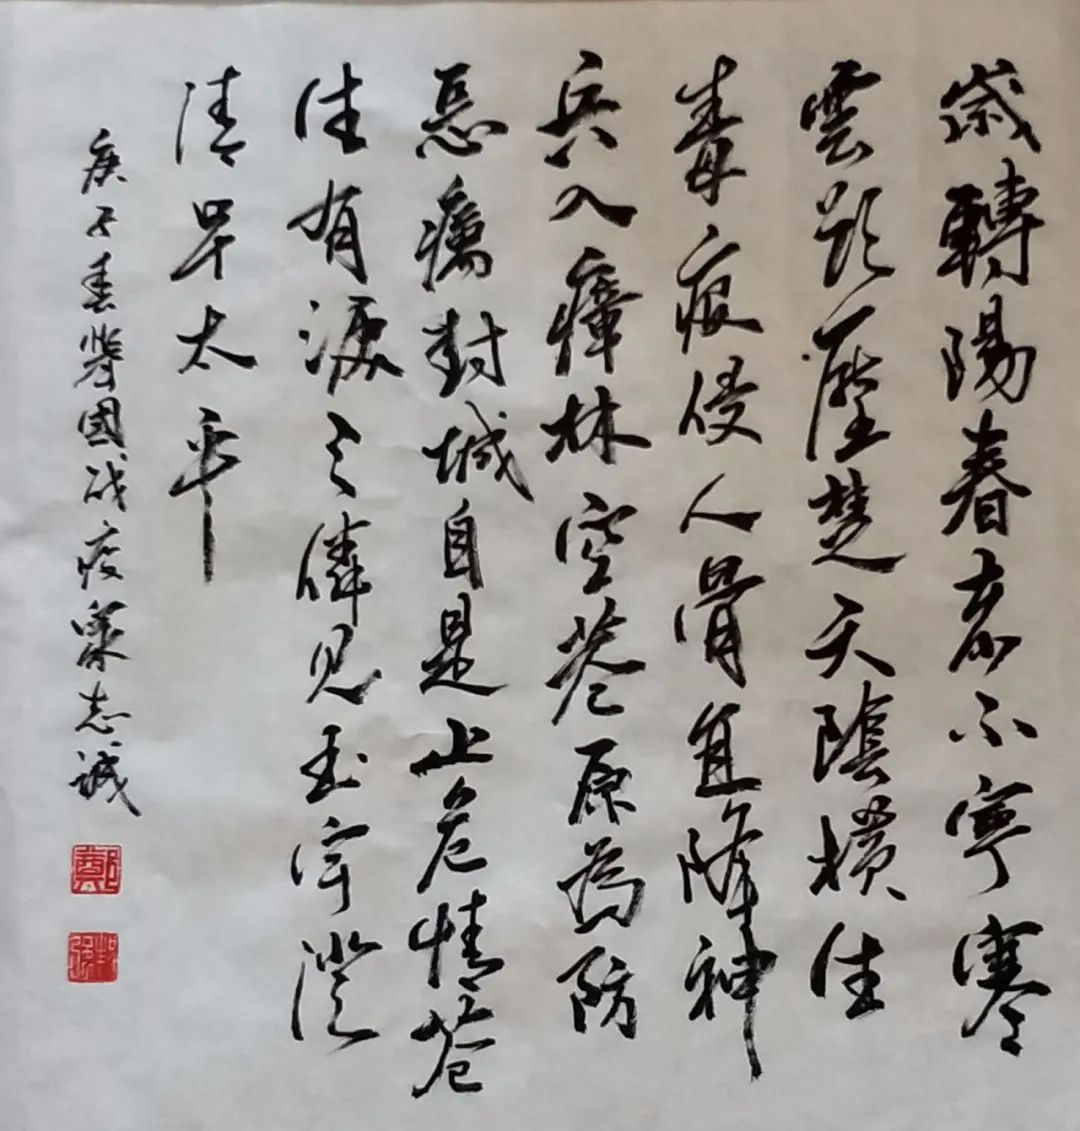 歲轉陽春春不寧寒
雲影壓楚天陰橫生
毒疫侵人骨直降神
兵入瘴林空巷原為防
惡癘封城自是止危情蒼
生有淚天憐見玉宇澄
清早太平
庚子春舉國戰疫志誠
鄭